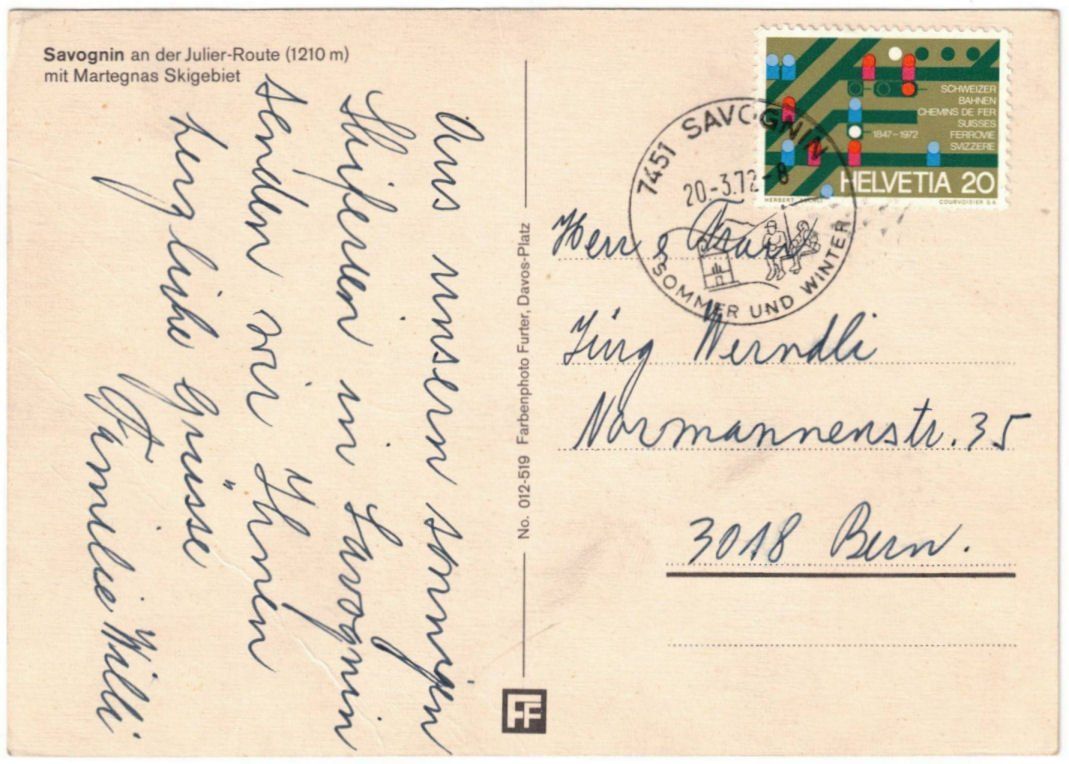 Savognin an der Julier-Route (1210 m)
mit Martegnas Skigebiet
Aus unsern sonnigen
Skiferien in Savognin
senden wir Ihnen
herzliche Grüsse
Familie Willi
No. 012-519 Farbenphoto Furter, Davos-Platz
FF
SCHWEIZER
BAHNEN
CHEMINS DE FER
SUISSES
1847-1972 FERROVIE
SVIZZERE
HELVETIA 20
COURVOISIER S.A.
7451 SAVOGNIN
20.-3.72-8
SOMMER UND WINTER
Herr & Frau
Jürg Werndli
Normannenstr. 35
3018 Bern.